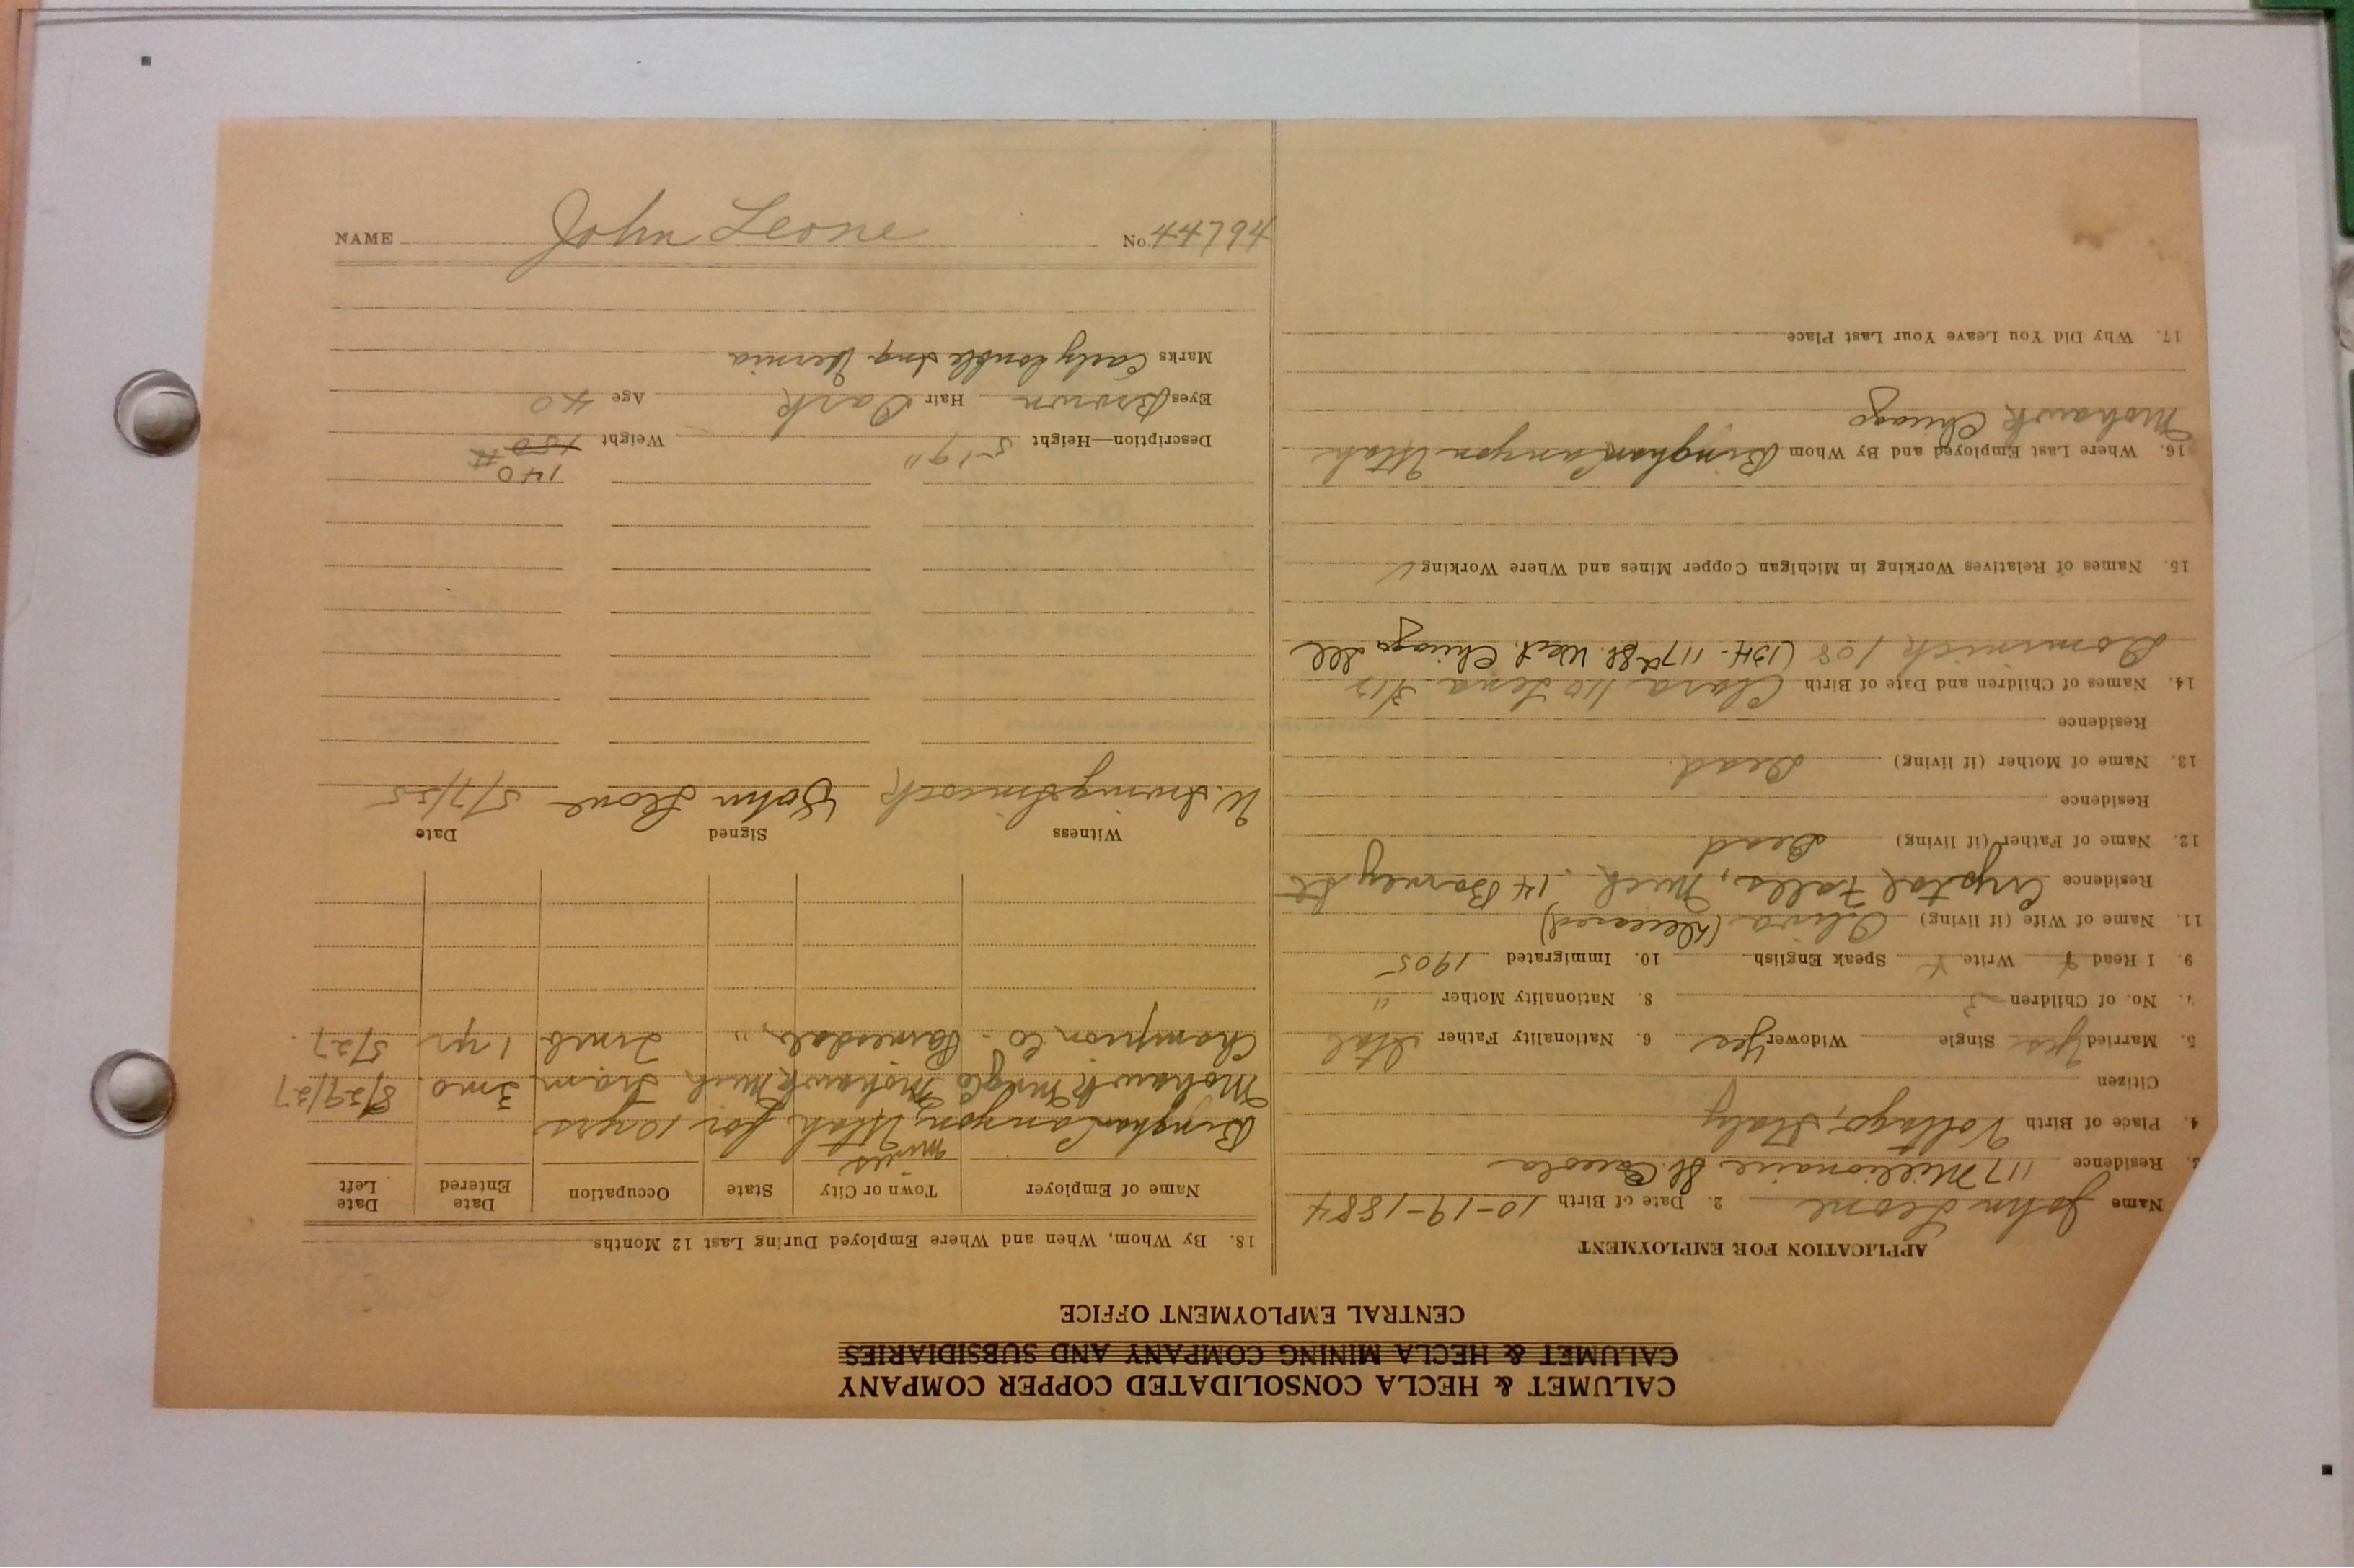 NAME John Leone No. 44794
CALUMET & HECLA CONSOLIDATED COPPER COMPANY
CALUMET & HECLA MINING COMPANY AND SUBSIDIARIES
CENTRAL EMPLOYMENT OFFICE
APPLICATION FOR EMPLOYMENT
Name John Leone 2. Date of Birth 10-19-1884
3. Residence 117 Millionaire St. Osceola
4. Place of Birth Voltago, Italy
Citizen
5. Married Yes Single Widower Yes 6. Nationality Father Ital
7. No. of Children 3 8. Nationality Mother "
9. I Read Write Speak English 10. Immigrated 1905
11. Name of Wife (if living) (Deceased)
Residence Crystal Falls, Mich. 14 Barney St
12. Name of Father (if living) Dead
Residence
13. Name of Mother (if living) Dead
Residence
14. Names of Children and Date of Birth Clara 110 Lena
Dominick 108 (134-117th St. West. Chicago Ill
15. Names of Relatives Working in Michigan Copper Mines and Where Working
16. Where Last Employed and By Whom Bingham Canyon Utah
Mohawk Chicago
17. Why Did You Leave Your Last Place
18. By Whom, When and Where Employed During Last 12 Months
Name of Employer Town or City State Occupation Date Entered Date Left
mines
Bingham Canyon, Utah for 10 yrs
Mohawk Mng Co Mohawk Mich Tram 3 mo. 8/29/27
Champion Co - Painesdale " Timb 1 yr 5/27.
Witness Signed Date
John Leone
140 #
Description—Height 5-1 9" Weight 150
Eyes Brown Hair Dark Age 40
Marks Early double Ing Hernia